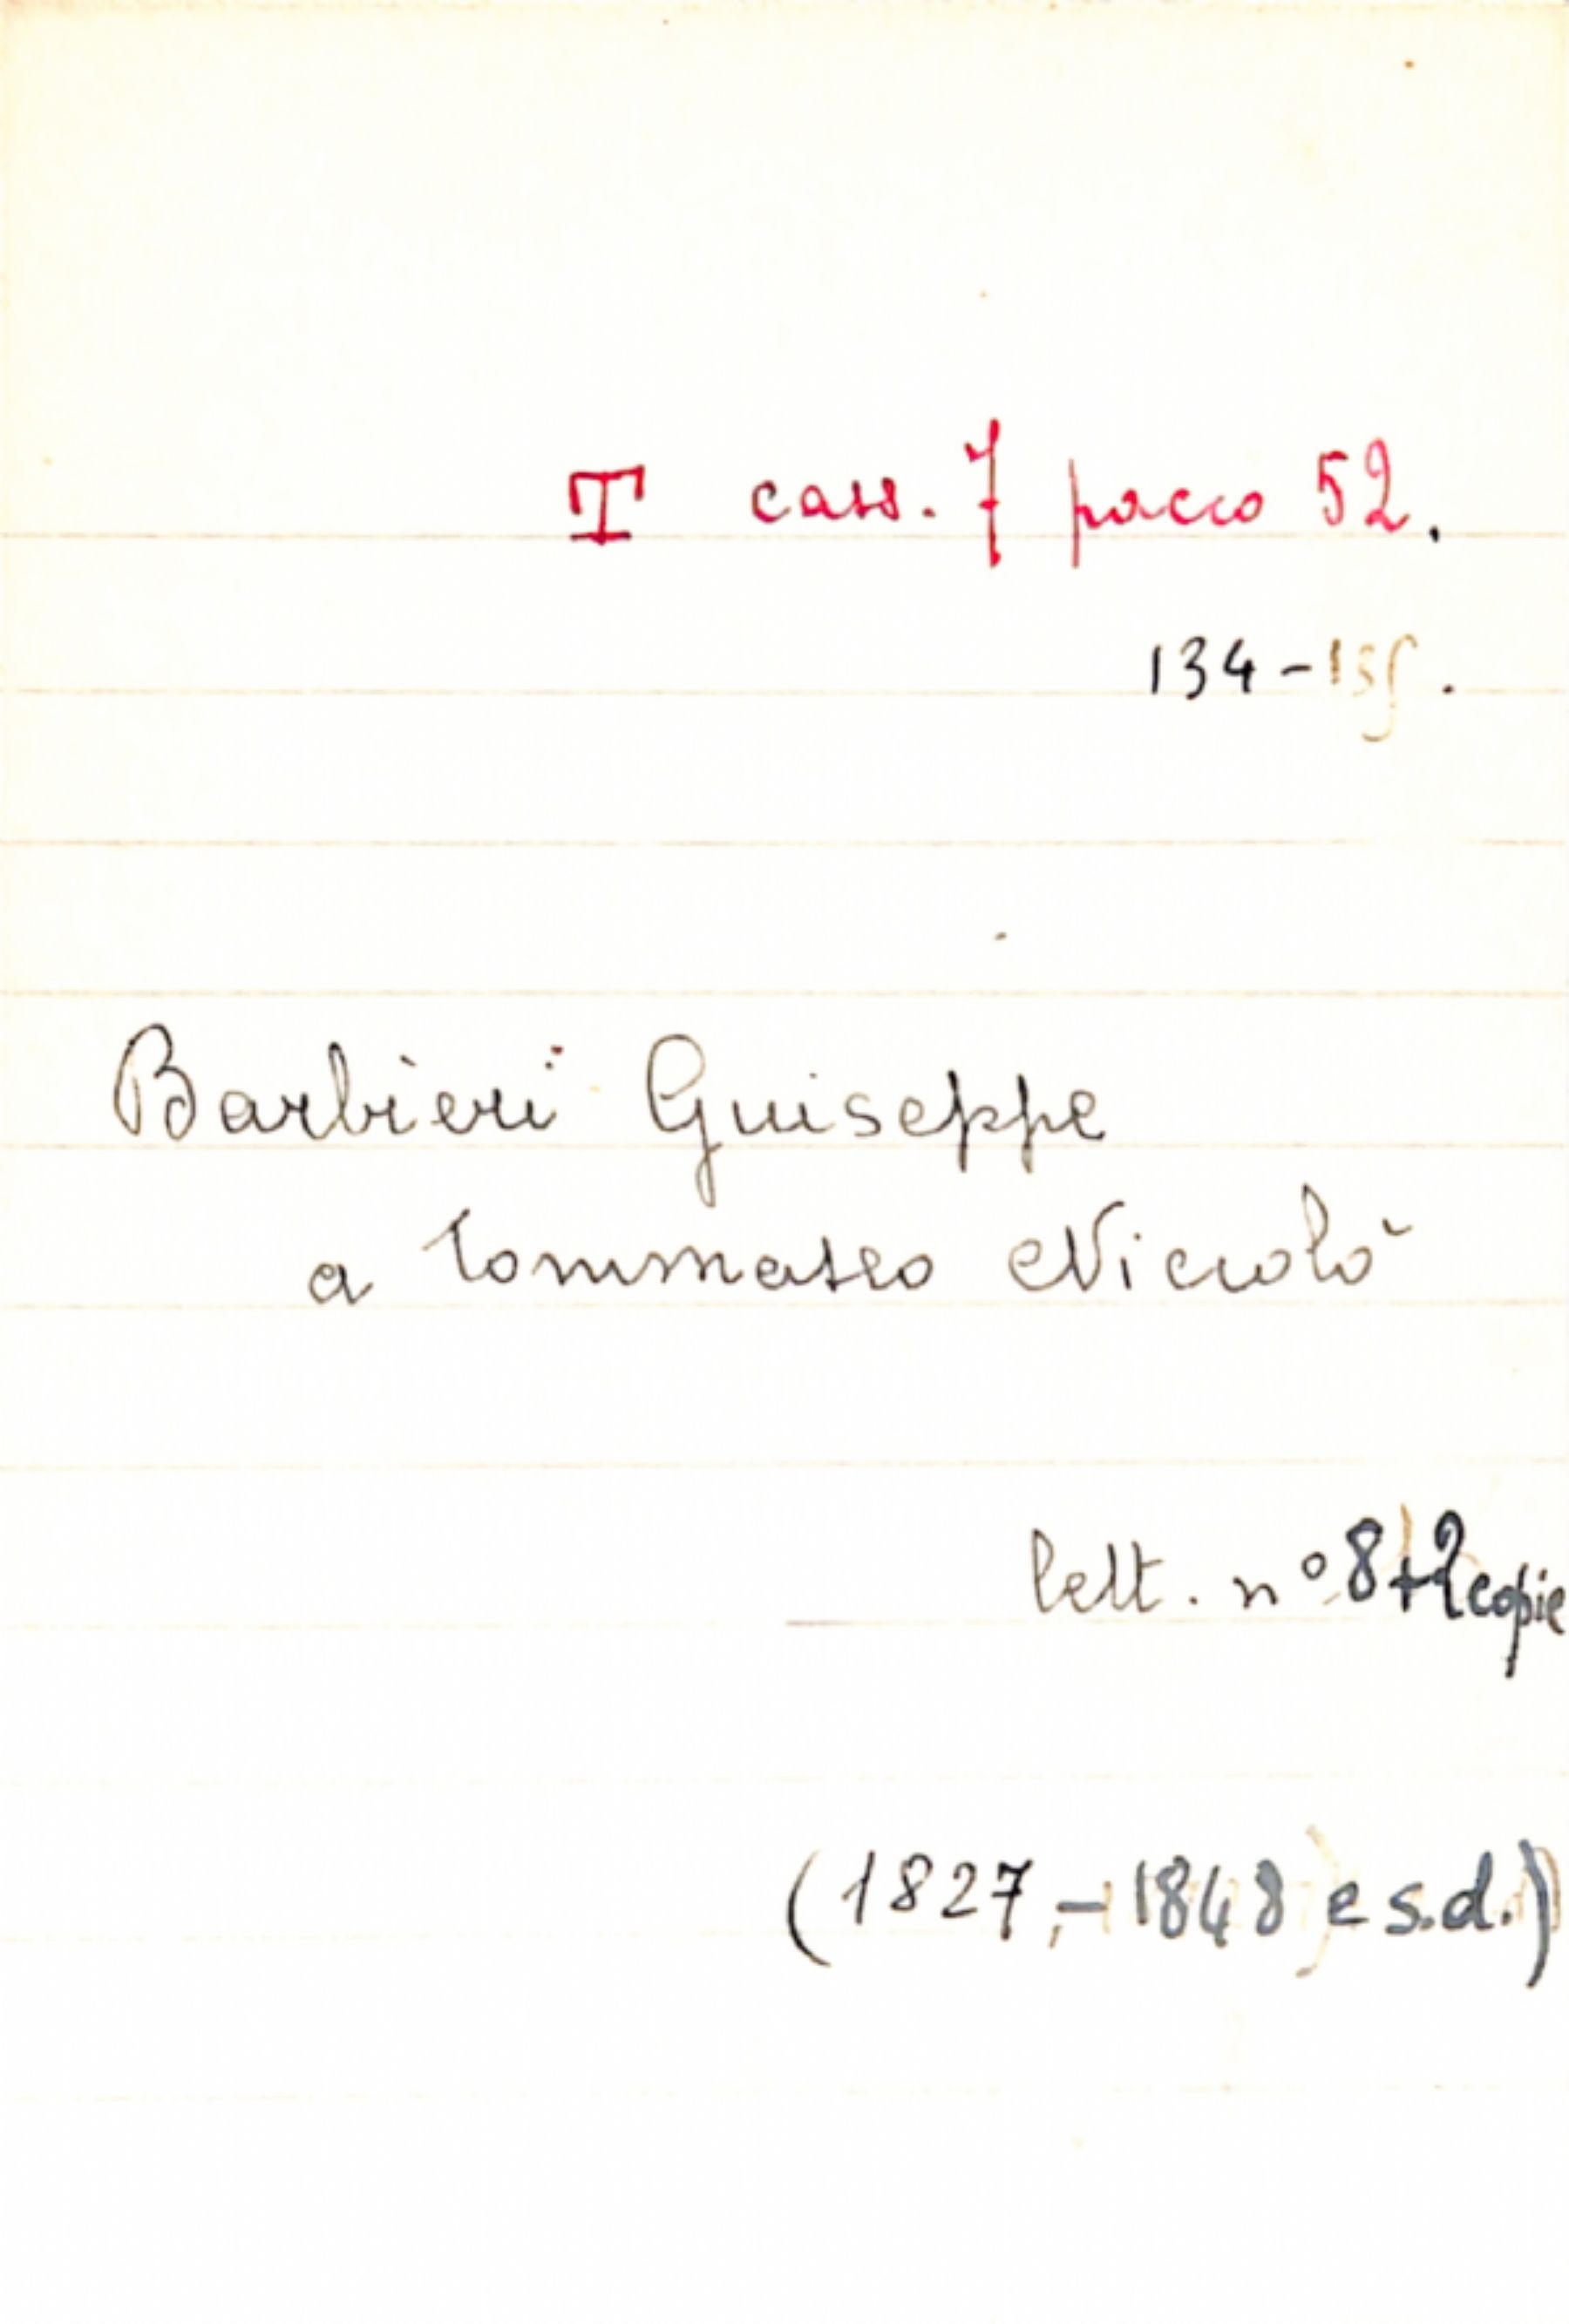 T cass. 7 pacco 52.
134 -
Barbieri Guiseppe
a Tommaseo Niccolò
lett. n° 8+2 copie
(1827, - 1848 e s.d.)